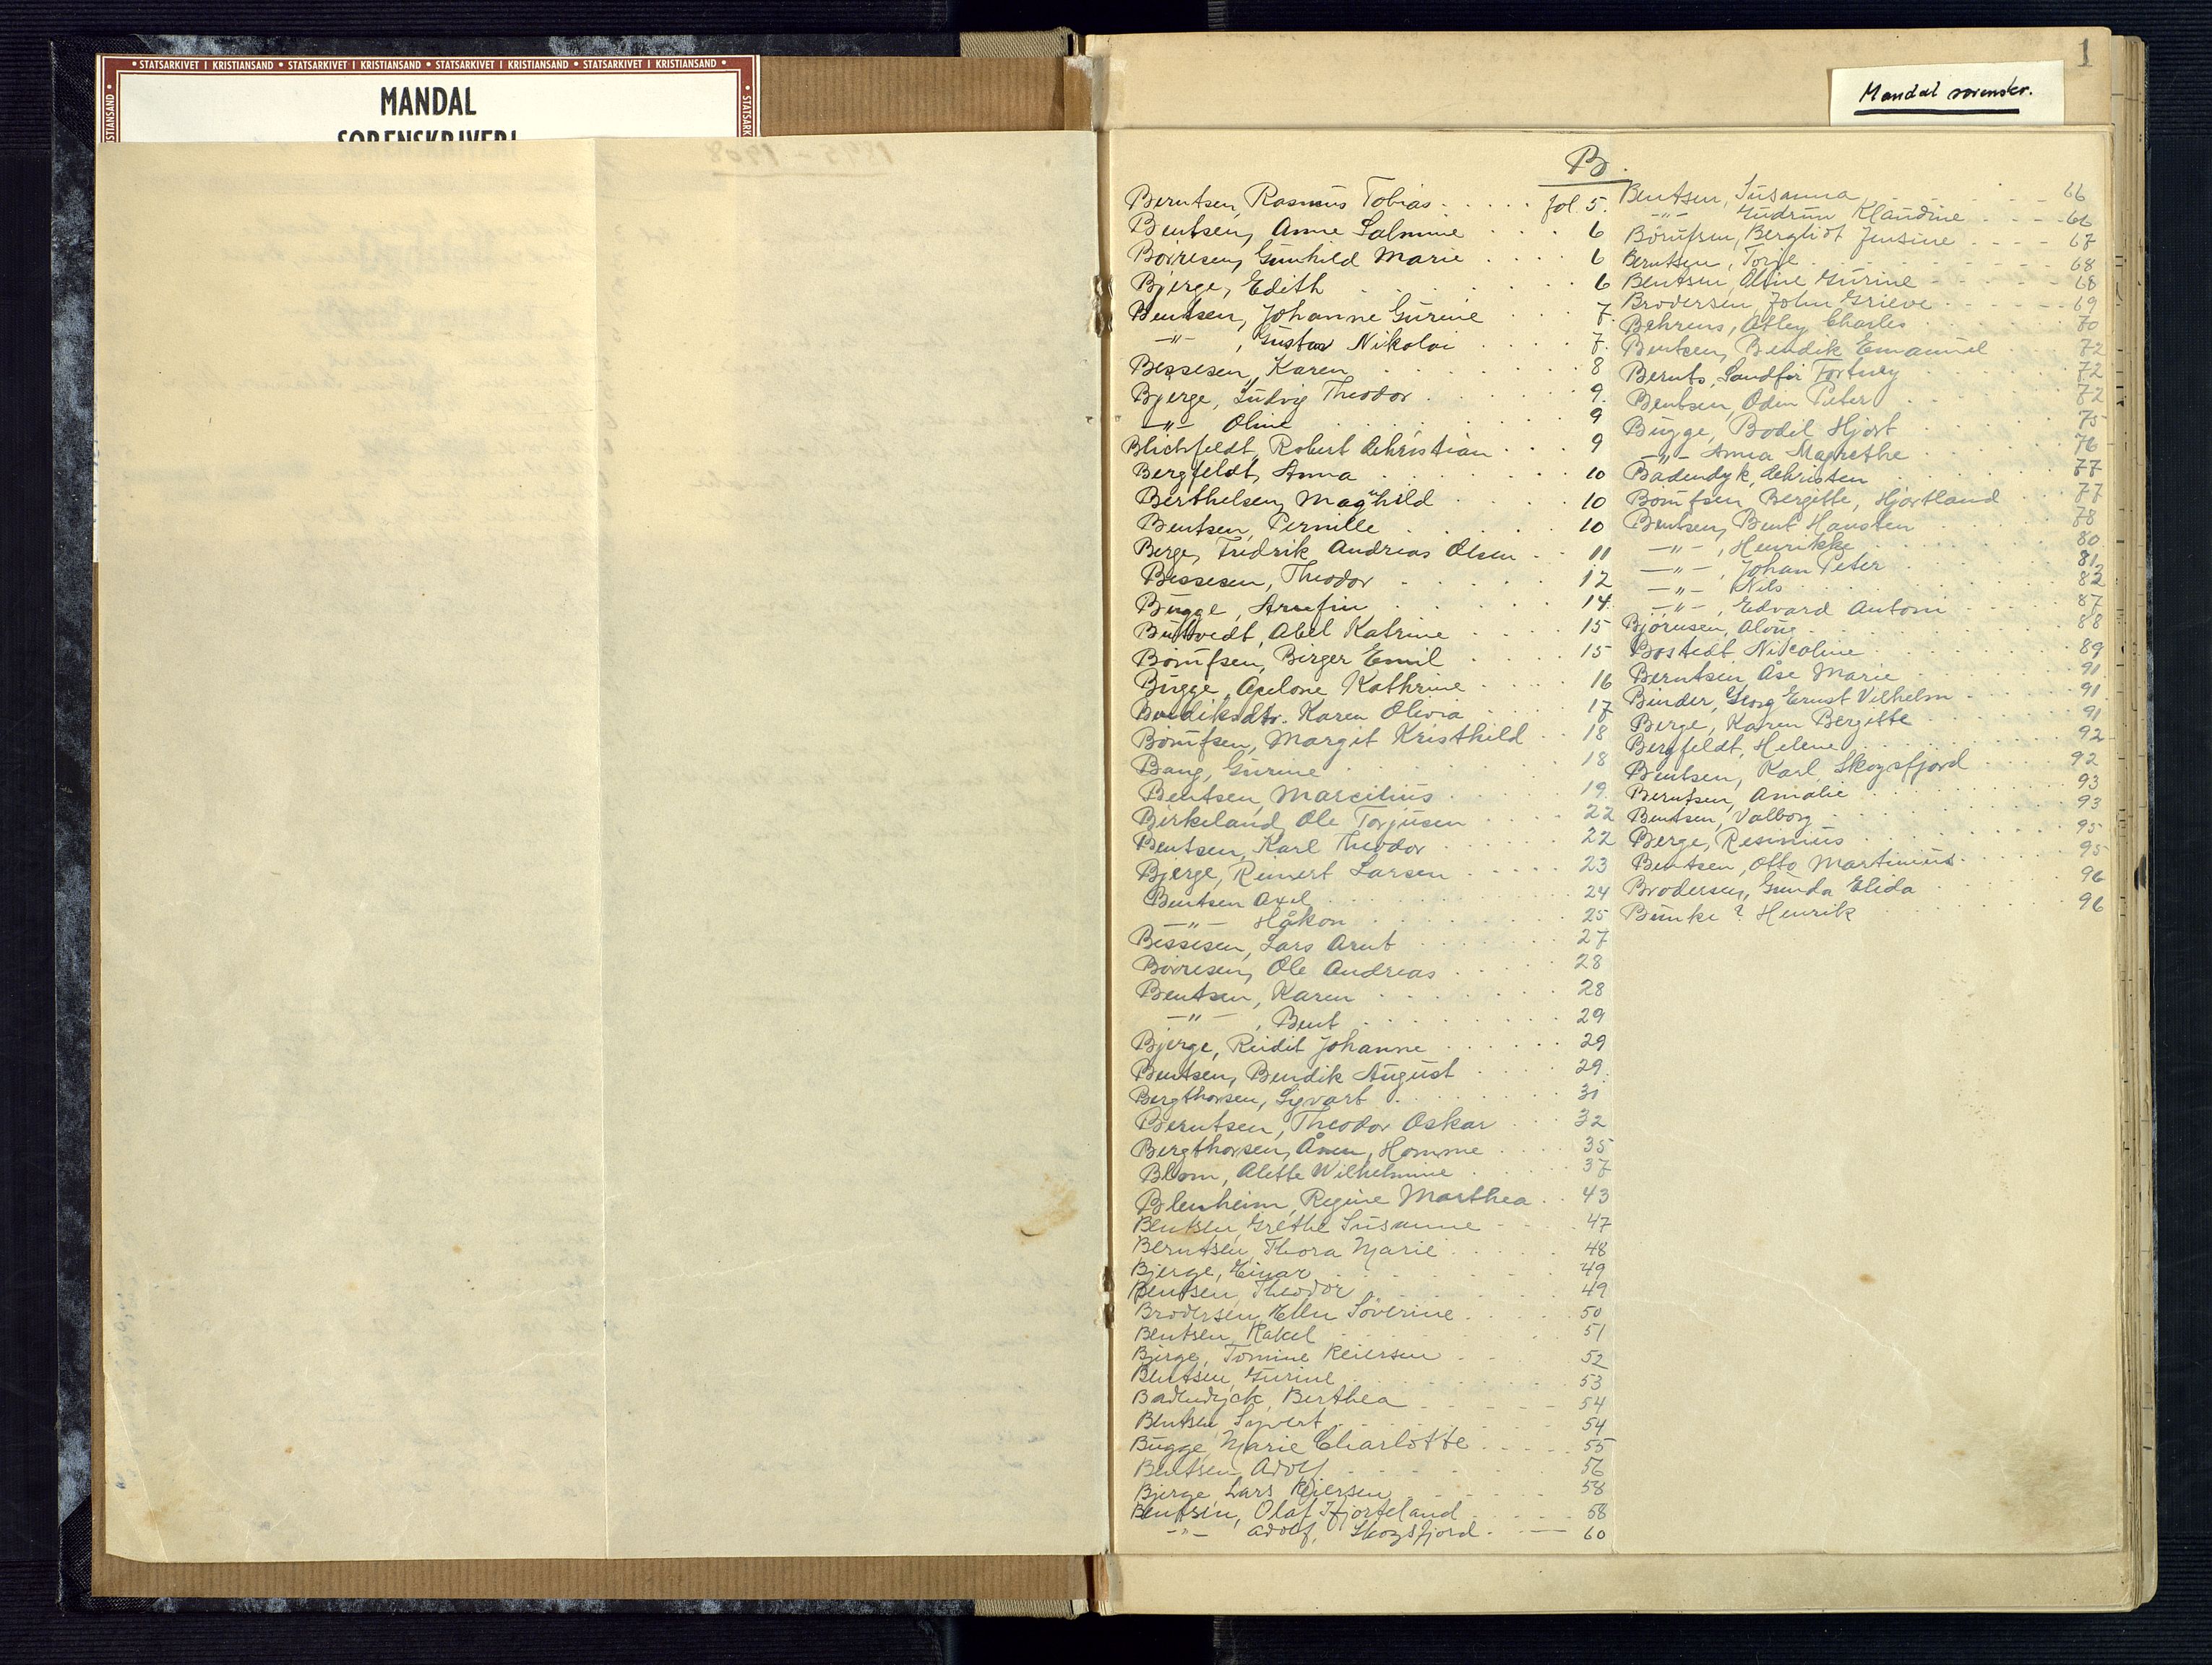 • STATSARKIVET I KRISTIANSAND • STATSARKIVET I KRISTIANSAND • STATSARKIVET I KRISTIANSAND • STATSARKIVET I KRISTIANSAND •
MANDAL
SORENSKRIVERI
1895 - 1908
1
Mandal sorenskr.
B.
Berntsen, Rasmus Tobias fol. 5.
Bentsen, Anne Salmine 6
Börresen, Gunhild Marie 6
Bjerge, Edith 6
Bentsen, Johanne Gurine 7.
-"- , Gustav Nikolai 7.
Bessesen, Karen 8
Bjerge, Ludvig Theodor 9.
-"- Oline 9
Blichfeldt, Robert Christian 9
Bergfeldt, Anna 10
Berthelsen, Magnhild 10
Bentsen, Pernille 10
Berge, Fredrik Andreas Olsen 11
Bessesen, Theodor 12
Bugge, Arnfin 14.
Buttvedt, Abel Katrine 15
Börufsen, Birger Emil 15
Bugge, Apelone Kathrine 16
Bendiksdtr. Karen Olivia 17
Börufsen, Margit Kristhild 18
Bang, Gurine 18
Bentsen, Marcelius 19.
Birkeland, Ole Torjusen 22
Bentsen, Karl Theodor 22
Bjerge, Reinert Larsen 23
Bentsen Axel 24
-"- Håkon 25
Bessesen, Lars Arnt 27
Börresen, Ole Andreas 28
Bentsen, Karen 28
-"- , Bent 29
Bjerge, Reidit Johanne 29
Bentsen, Bendik August 29.
Bergthorsen, Syvart 31
Berntsen, Theodor Oskar 32
Bergthorsen, Ånen, Homme 35
Blom, Alette Wilhelmine 37
Blenheim, Regine Marthea 43
Bentsen, Grethe Susanne 47
Berntsen, Thora Marie 48
Bjerge, Einar 49
Bentsen, Theodor 49
Brodersen, Ellen Söverine 50
Bentsen, Rakel 51
Bjerge, Tomine Reiersen 52
Bentsen, Gurine 53
Badendyck, Berthea 54
Bentsen, Syvert 54
Bugge, Marie Charlotte 55
Bentsen, Adolf 56
Bjerge Lars Reiersen 58
Bentsen, Olaf Hjorteland 58
-"- Adolf, Skogsfjord 60
Bentsen, Susanna 66
-"- Gudrun Klaudine 66
Börufsen, Bergliot Jensine 67
Berntsen, Torje 68
Bentsen, Oline Gurine 68
Brodersen, John Grieve 69
Behrens, Atley Charles 70
Bentsen, Bendik Emanuel 72
Bernts, Sandfir Fortney 72
Bentsen, Oden Peter 72
Bugge, Bodil Hjort 75
-"- Anna Magrethe 76
Badendyk, Christen 77
Börufsen, Bergitte, Hjortland 77
Bentsen, Bent Hansten 78
-"- , Henrikke 80
-"- , Johan Peter 81
-"- Nils 82
-"- , Edvard Antoni 87
Björnsen, Alvine 88
Bostedt Nicoline 89
Berntsen, Åse Marie 91
Binder, Georg Ernst Vilhelm 91
Berge, Karen Bergitte 91
Bergfeldt, Helene 92
Bentsen, Karl, Skogsfjord 92
Berntsen, Amalie 93
Bentsen, Valborg 93
Berge, Resinius 95
Bentsen, Otto Martinius 95
Brodersen, Gunda Elida 96
Bunke? Henrik 96